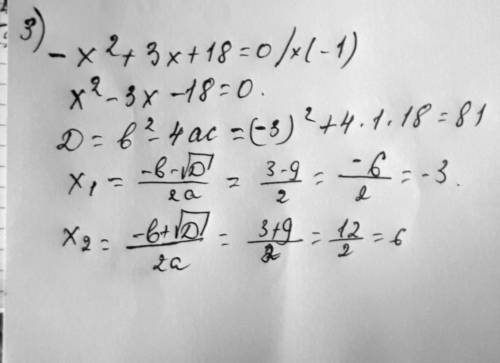 3)
-x² + 3x + 18 = 0 /×(-1)
x² - 3x - 18 = 0.
D = b² - 4ac = (-3)² + 4·1·18 = 81
x₁ = (-b-√D)/2a = (3-9)/2 = -6/2 = -3.
x₂ = (-b+√D)/2a = (3+9)/2 = 12/2 = 6